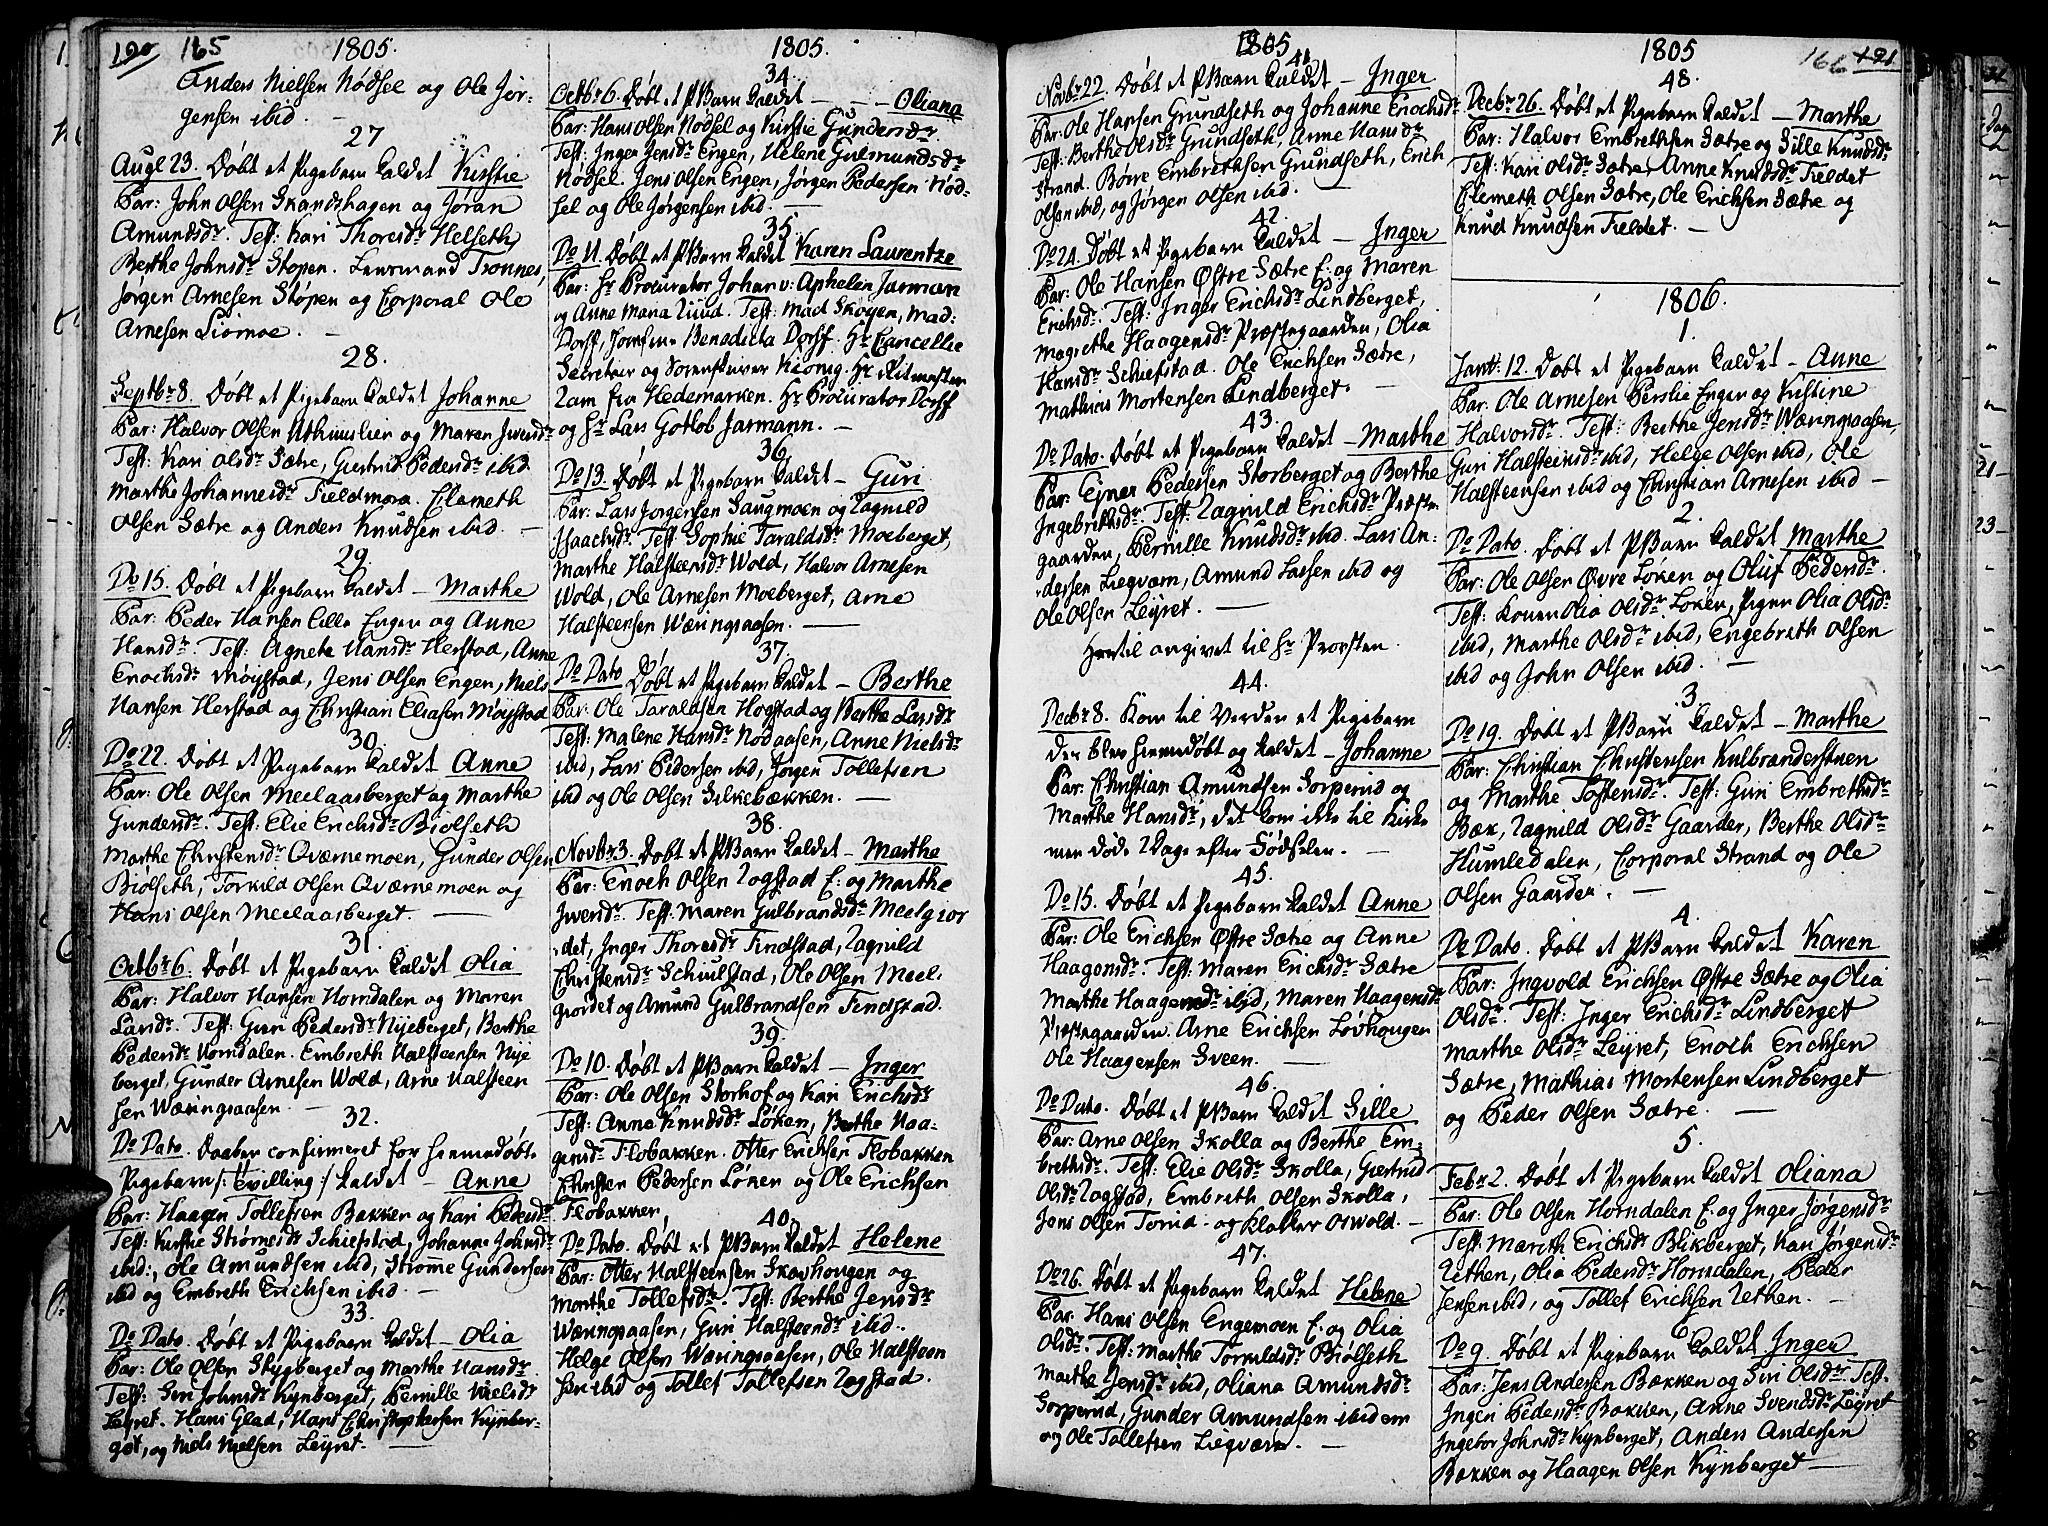 190 165 1805.
Anders Nielsen Nødsel og Ole Jør-
gensen ibid. —
27
Augl 23. Døbt et Pigebarn kaldet Kirstie
Par: John Olsen Skandshagen og Jøran
Amundsdr. Test: Kari Thoresdr Helseth,
Berthe Johnsdr Stopen. Lensmand Trønnes,
Jørgen Arnesen Støpen og Corporal Ole
Arnesen Liørmoe. —
28.
Septbr 8. Døbt et Pigebarn kaldet Johanne
Par: Halvor Olsen og Maren Iversdr
Test: Kari Olsdr Sætre, Giertrud Pedersdr ibid
Marthe Johannesdr Fieldmora. Clemeth
Olsen Sætre og Anders Knudsen ibid. —
29.
Do 15. Døbt et Pigebarn kaldet — Marthe
Par: Peder Hansen Lille Engen og Anne
Hansdr. Test: Agnete Hansdr Herstad, Anne
Enochsdr Møystad, Jens Olsen Engen, Niels
Hansen Herstad og Christian Eliasen Møystad
30.
Do 22. Døbt et Pigebarn kaldet Anne
Par: Ole Olsen Meelaasberget og Marthe
Gundersdr. Test: Elie Erichsdr Biølseth
Marthe Christensdr Qværnemoen, Gunder Olsen
Biølseth, Torkild Olsen Qværnemoen og
Hans Olsen Meelaasberget. —
31.
Octbr 6. Døbt et Pigebarn kaldet Olia
Par: Halvor Hansen Horndalen og Maren
Larsdr. Test: Guri Pedersdr Nyeberget, Berthe
Pedersdr Horndalen. Embreth Halsteensen Nye
berget, Gunder Arnesen Wold, Arne Halsteen
sen Wæringsaasen. —
32.
Do Dato. Daaben confirmeret for hiemmedøbt
Pigebarn /: Tvilling :/ kaldet — Anne
Par: Haagen Tollefsen Bakken og Kari Pedersdr
Test: Kirstie Strømesdr Schiefstad, Johanne Johnsdr
ibid:, Ole Amundsen ibid, Strøme Gundersen
ibid og Embreth Erichsen ibid. —
33.
Do Dato. Døbt et Pigebarn kaldet — Olia
Par: Ole Olsen Stygberget og Marthe Hansdr.
Test: Siri Johnsdr Kynberget, Pernille Nielsdr
Leyret. Hans Glad, Hans Christophersen Kynber-
get, og Niels Nielsen Leyret. —
1805.
34.
Octbr 6. Døbt et PBarn kaldet — — Oliana
Par: Hans Olsen Nødsel og Kirstie Gundersdr
Test: Inger Jensdr Engen, Helene Gulmundsdr
Nødsel. Jens Olsen Engen, Jørgen Pedersen Nød-
sel og Ole Jørgensen ibid. —
35.
Do 11. Døbt et PBarn kaldet Karen Laurentze
Par: Hr Procurator Johan v: Aphelen Jarman
og Anne Maria Juud. Test: Mad Skogen, Mad:
Dorff, Jomfrue Benedicta Dorff. Hr Cancellie
Secretair og Sorenskriver Kiønig. Hr Ritmester
Lam fra Hedemarken. Hr Procurator Dorff
og Hr Lars Gotlob Jarmann. —
36.
Do 13. Døbt et Pigebarn kaldet — Guri
Par: Lars Jørgensen Saugmoen og Ragnild
Isaachsdr. Test Sophie Taraldsdr Moeberget,
Marthe Halsteensdr Wold, Halvor Arnesen
Wold, Ole Arnesen Moeberget, Arne
Halsteensen Wæringsaasen. —
37.
Do Dato Døbt et Pigebarn kaldet — Berthe
Par: Ole Taraldsen Hogstad og Berthe Larsdr
Test: Malene Hansdr Nodaasen, Anne Nielsdr
ibid, Lars Pedersen ibid, Jørgen Tollefsen
ibid og Ole Olsen Silkebækken. —
38.
Novbr 3. Døbt et PBarn kaldet — Marthe
Par: Enoch Olsen Rogstad E: og Marthe
Iversdr. Test: Maren Gulbrandsdr Meelgior
det, Inger Thoresdr Findstad, Ragnild
Christensdr Schiulstad, Ole Olsen Meel-
giordet og Amund Gulbrandsen Findstad.
39.
Do 10. Døbt et PBarn kaldet — Inger
Par: Ole Olsen Storhof og Kari Erichsdr
Test: Anne Knudsdr Løken, Berthe Haa-
gensdr Flobakken. Otter Erichsen Flobakken
Christen Pedersen Løken og Ole Erichsen
Flobakken
40.
Do Dato. Døbt et PBarn kaldet Helene
Par: Otter Halsteensen Skovhougen og
Marthe Tollefsdr. Test: Berthe Jensdr
Wæringsaasen, Guri Halsteensdr ibid.
Helge Olsen Wæringsaasen, Ole Halsteen
sen ibid og Tollef Tollefsen Rogstad.
1805
41
Novbr 22. Døbt et PBarn kaldet — Inger
Par: Ole Hansen Grundseth og Johanne Enochsdr
Test: Berthe Olsdr Grundseth, Anne Hansdr
Strand. Børre Embrethsen Grundseth, Erich
Olsen ibid, og Jørgen Olsen ibid.
42.
Do 24. Døbt et Pigebarn kaldet — Inger
Par: Ole Hansen Østre Sætre E: og Maren
Erichsdr. Test: Inger Erichsdr Lindberget,
Magrethe Haagensdr Præstegaarden, Olia
Hansdr Schiefstad. Ole Erichsen Sætre,
Mathias Mortensen Lindberget. —
43.
Do Dato. Døbt et Pigebarn kaldet — Marthe
Par: Ejner Pedersen Storberget og Berthe
Ingebrithsdr. Test: Ragnild Erichsdr Præste
gaarden, Pernille Knudsdr ibid. Lars An-
dersen Liegværn, Amund Larsen ibid og
Ole Olsen Leyret. —
Hertil angivet til Hr Provsten.
44.
Decbr 8. Kom til Verden et Pigebarn
der blev hiemmedøbt og kaldet — Johanne
Par: Christian Amundsen Sorperud og
Marthe Hansdr, det kom ikke til Kirke
men døde 2 Dage efter Fødselen. —
45.
Do 15. Døbt et Pigebarn kaldet Anne
Par: Ole Erichsen Østre Sætre og Anne
Haagensdr. Test: Maren Erichsdr Sætre
Marthe Haagensdr ibid, Maren Haagensdr
Præstegaarden. Arne Erichsen Løvhougen
Ole Haagensen Sveen. —
46.
Do Dato. Døbt et PBarn kaldet Sille
Par: Arne Olsen Skolla og Berthe Em-
brethsdr. Test: Elie Olsdr Skolla, Giertrud
Olsdr Rogstad, Embreth Olsen Skolla,
Jens Olsen Torud og Klokker Oswold. —
47.
Do 26. Døbt et Pigebarn kaldet Helene
Par: Hans Olsen Engemoen E: og Olia
Olsdr. Test: Marthe Torkildsdr Biølseth
Marthe Jensdr ibid, Oliana Amundsdr
Sorperud, Gunder Amundsen ibidem
og Ole Tollefsen Liegværn. —
1805 166 191
48.
Decbr 26. Døbt et Pigebarn kaldet — Marthe
Par: Halvor Embrethsen Sætre og Sille Knudsdr
Test: Kari Olsdr Sætre, Anne Knudsdr Fieldet
Clemeth Olsen Sætre, Ole Erichsen Sætre og
Knud Knudsen Fieldet. —
1806.
1.
Jant: 12. Døbt et Pigebarn kaldet — Anne
Par: Ole Arnesen Perslie Engen og Kistine
Halvorsdr. Test: Berthe Jensdr Wæringsaasen,
Guri Halsteinsdr ibid, Helge Olsen ibid, Ole
Halsteensen ibid og Christian Arnesen ibid —
2.
Do Dato. Døbt et PBarn kaldet Marthe
Par: Ole Olsen Øvre Løken og Oluf Pedersdr.
Test: Konen Olia Olsdr Løken, Pigen Olia Olsdr
ibid, Marthe Olsdr ibid, Engebreth Olsen
ibid og John Olsen ibid. —
3.
Do 19. Døbt et PBarn kaldet — Marthe
Par: Christian Christensen Kulbranderstuen
og Marthe Tostensdr. Test: Guri Embrethsdr
Bæk, Ragnild Olsdr Gaarder, Berthe Olsdr
Humledalen, Corporal Strand og Ole
Olsen Gaarder. —
4.
Do Dato. Døbt et PBarn kaldet Karen
Par: Ingvold Erichsen Østre Sætre og Olia
Olsdr. Test: Inger Erichsdr Lindberget
Marthe Olsdr Leyret, Enoch Erichsen
Sætre, Mathias Mortensen Lindberget
og Peder Olsen Sætre. —
5.
Febr 2. Døbt et Pigebarn kaldet Oliana
Par: Ole Olsen Horndalen E: og Inger Jørgensdr
Test: Mærith Erichsdr Blikberget, Kari Jørgensdr
Rethen, Olia Pedersdr Horndalen, Peder
Jensen ibid, og Tollef Erichsen Rethen. —
6
Do 9. Døbt et Pigebarn kaldet Inger
Par: Jens Andersen Bakken og Siri Olsdr Test.
Ingeri Pedersdr Bakken, Anne Svendsdr Leyret
Ingebor Johnsdr Kynberget, Anders Andersen
Bakken og Haagen Olsen Kynberget —